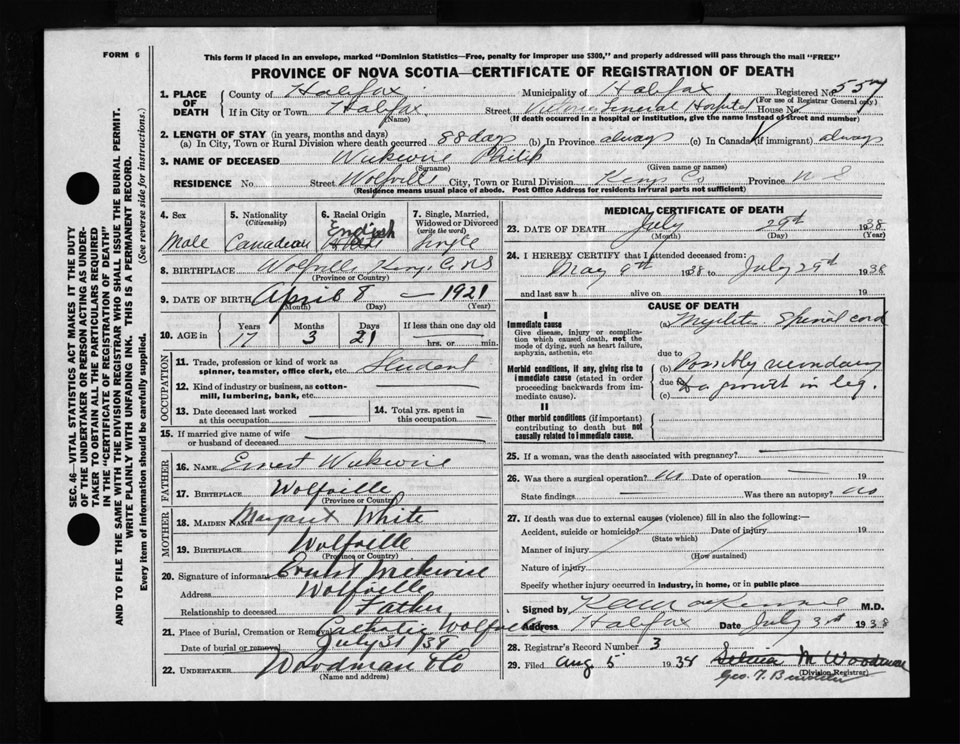 FORM 6
This form if placed in an envelope, marked "Dominion Statistics—Free, penalty for improper use $300," and properly addressed will pass through the mail "FREE"
PROVINCE OF NOVA SCOTIA—CERTIFICATE OF REGISTRATION OF DEATH
SEC. 46—VITAL STATISTICS ACT MAKES IT THE DUTY
OF THE UNDERTAKER OR PERSON ACTING AS UNDER-
TAKER TO OBTAIN ALL THE PARTICULARS REQUIRED
IN THE "CERTIFICATE OF REGISTRATION OF DEATH"
AND TO FILE THE SAME WITH THE DIVISION REGISTRAR WHO SHALL ISSUE THE BURIAL PERMIT.
WRITE PLAINLY WITH UNFADING INK. THIS IS A PERMANENT RECORD.
Every item of information should be carefully supplied. (See reverse side for instructions.)
1. PLACE OF DEATH
County of Halifax Municipality of Halifax Registered No. 557
(For use of Registrar General only)
If in City or Town Halifax Street Victoria General Hospital House No.
(Name) (If death occurred in a hospital or institution, give the name instead of street and number)
2. LENGTH OF STAY (in years, months and days)
(a) In City, Town or Rural Division where death occurred 88 days (b) In Province always (c) In Canada (if immigrant) always
3. NAME OF DECEASED Wickwire Philip
(Surname) (Given name or names)
RESIDENCE No. Street Wolfville City, Town or Rural Division Kings Co Province N S
(Residence means usual place of abode. Post Office Address for residents in rural parts not sufficient)
4. Sex Male
5. Nationality (Citizenship) Canadian
6. Racial Origin English
7. Single, Married, Widowed or Divorced (write the word) Single
8. BIRTHPLACE Wolfville Kings Co NS
(Province or Country)
9. DATE OF BIRTH April 8 — 1921
(Month) (Day) (Year)
10. AGE in Years 17 Months 3 Days 21 If less than one day old
hrs. or min.
OCCUPATION
11. Trade, profession or kind of work as spinner, teamster, office clerk, etc. Student
12. Kind of industry or business, as cotton-mill, lumbering, bank, etc.
13. Date deceased last worked at this occupation
14. Total yrs. spent in this occupation
15. If married give name of wife or husband of deceased
FATHER
16. NAME Ernest Wickwire
17. BIRTHPLACE Wolfville
(Province or Country)
MOTHER
18. MAIDEN NAME Margaret White
19. BIRTHPLACE Wolfville
(Province or Country)
20. Signature of informant Ernest Wickwire
Address Wolfville
Relationship to deceased Father
21. Place of Burial, Cremation or Removal Catholic Wolfville
Date of burial or removal July 31/38
22. UNDERTAKER Woodman & Co
(Name and address)
MEDICAL CERTIFICATE OF DEATH
23. DATE OF DEATH July 29th 1938
(Month) (Day) (Year)
24. I HEREBY CERTIFY that I attended deceased from:
May 9th 1938 to July 29th 1938
and last saw h alive on 19
CAUSE OF DEATH
I
Immediate cause
Give disease, injury or complication which caused death, not the mode of dying, such as heart failure, asphyxia, asthenia, etc
(a) Myelitis Spinal cord
due to
Morbid conditions, if any, giving rise to immediate cause (stated in order proceeding backwards from immediate cause).
(b) Possibly secondary
due to
(c) to growth in leg.
II
Other morbid conditions (if important) contributing to death but not causally related to immediate cause.
25. If a woman, was the death associated with pregnancy?
26. Was there a surgical operation? No Date of operation 19
State findings Was there an autopsy? No
27. If death was due to external causes (violence) fill in also the following:—
Accident, suicide or homicide? Date of injury 19
(State which)
Manner of injury
(How sustained)
Nature of injury
Specify whether injury occurred in industry, in home, or in public place
Signed by M.D.
Address Halifax Date July 31st 1938
28. Registrar's Record Number 3
29. Filed Aug 5 1938 M Woodman
(Division Registrar)
Geo. T.